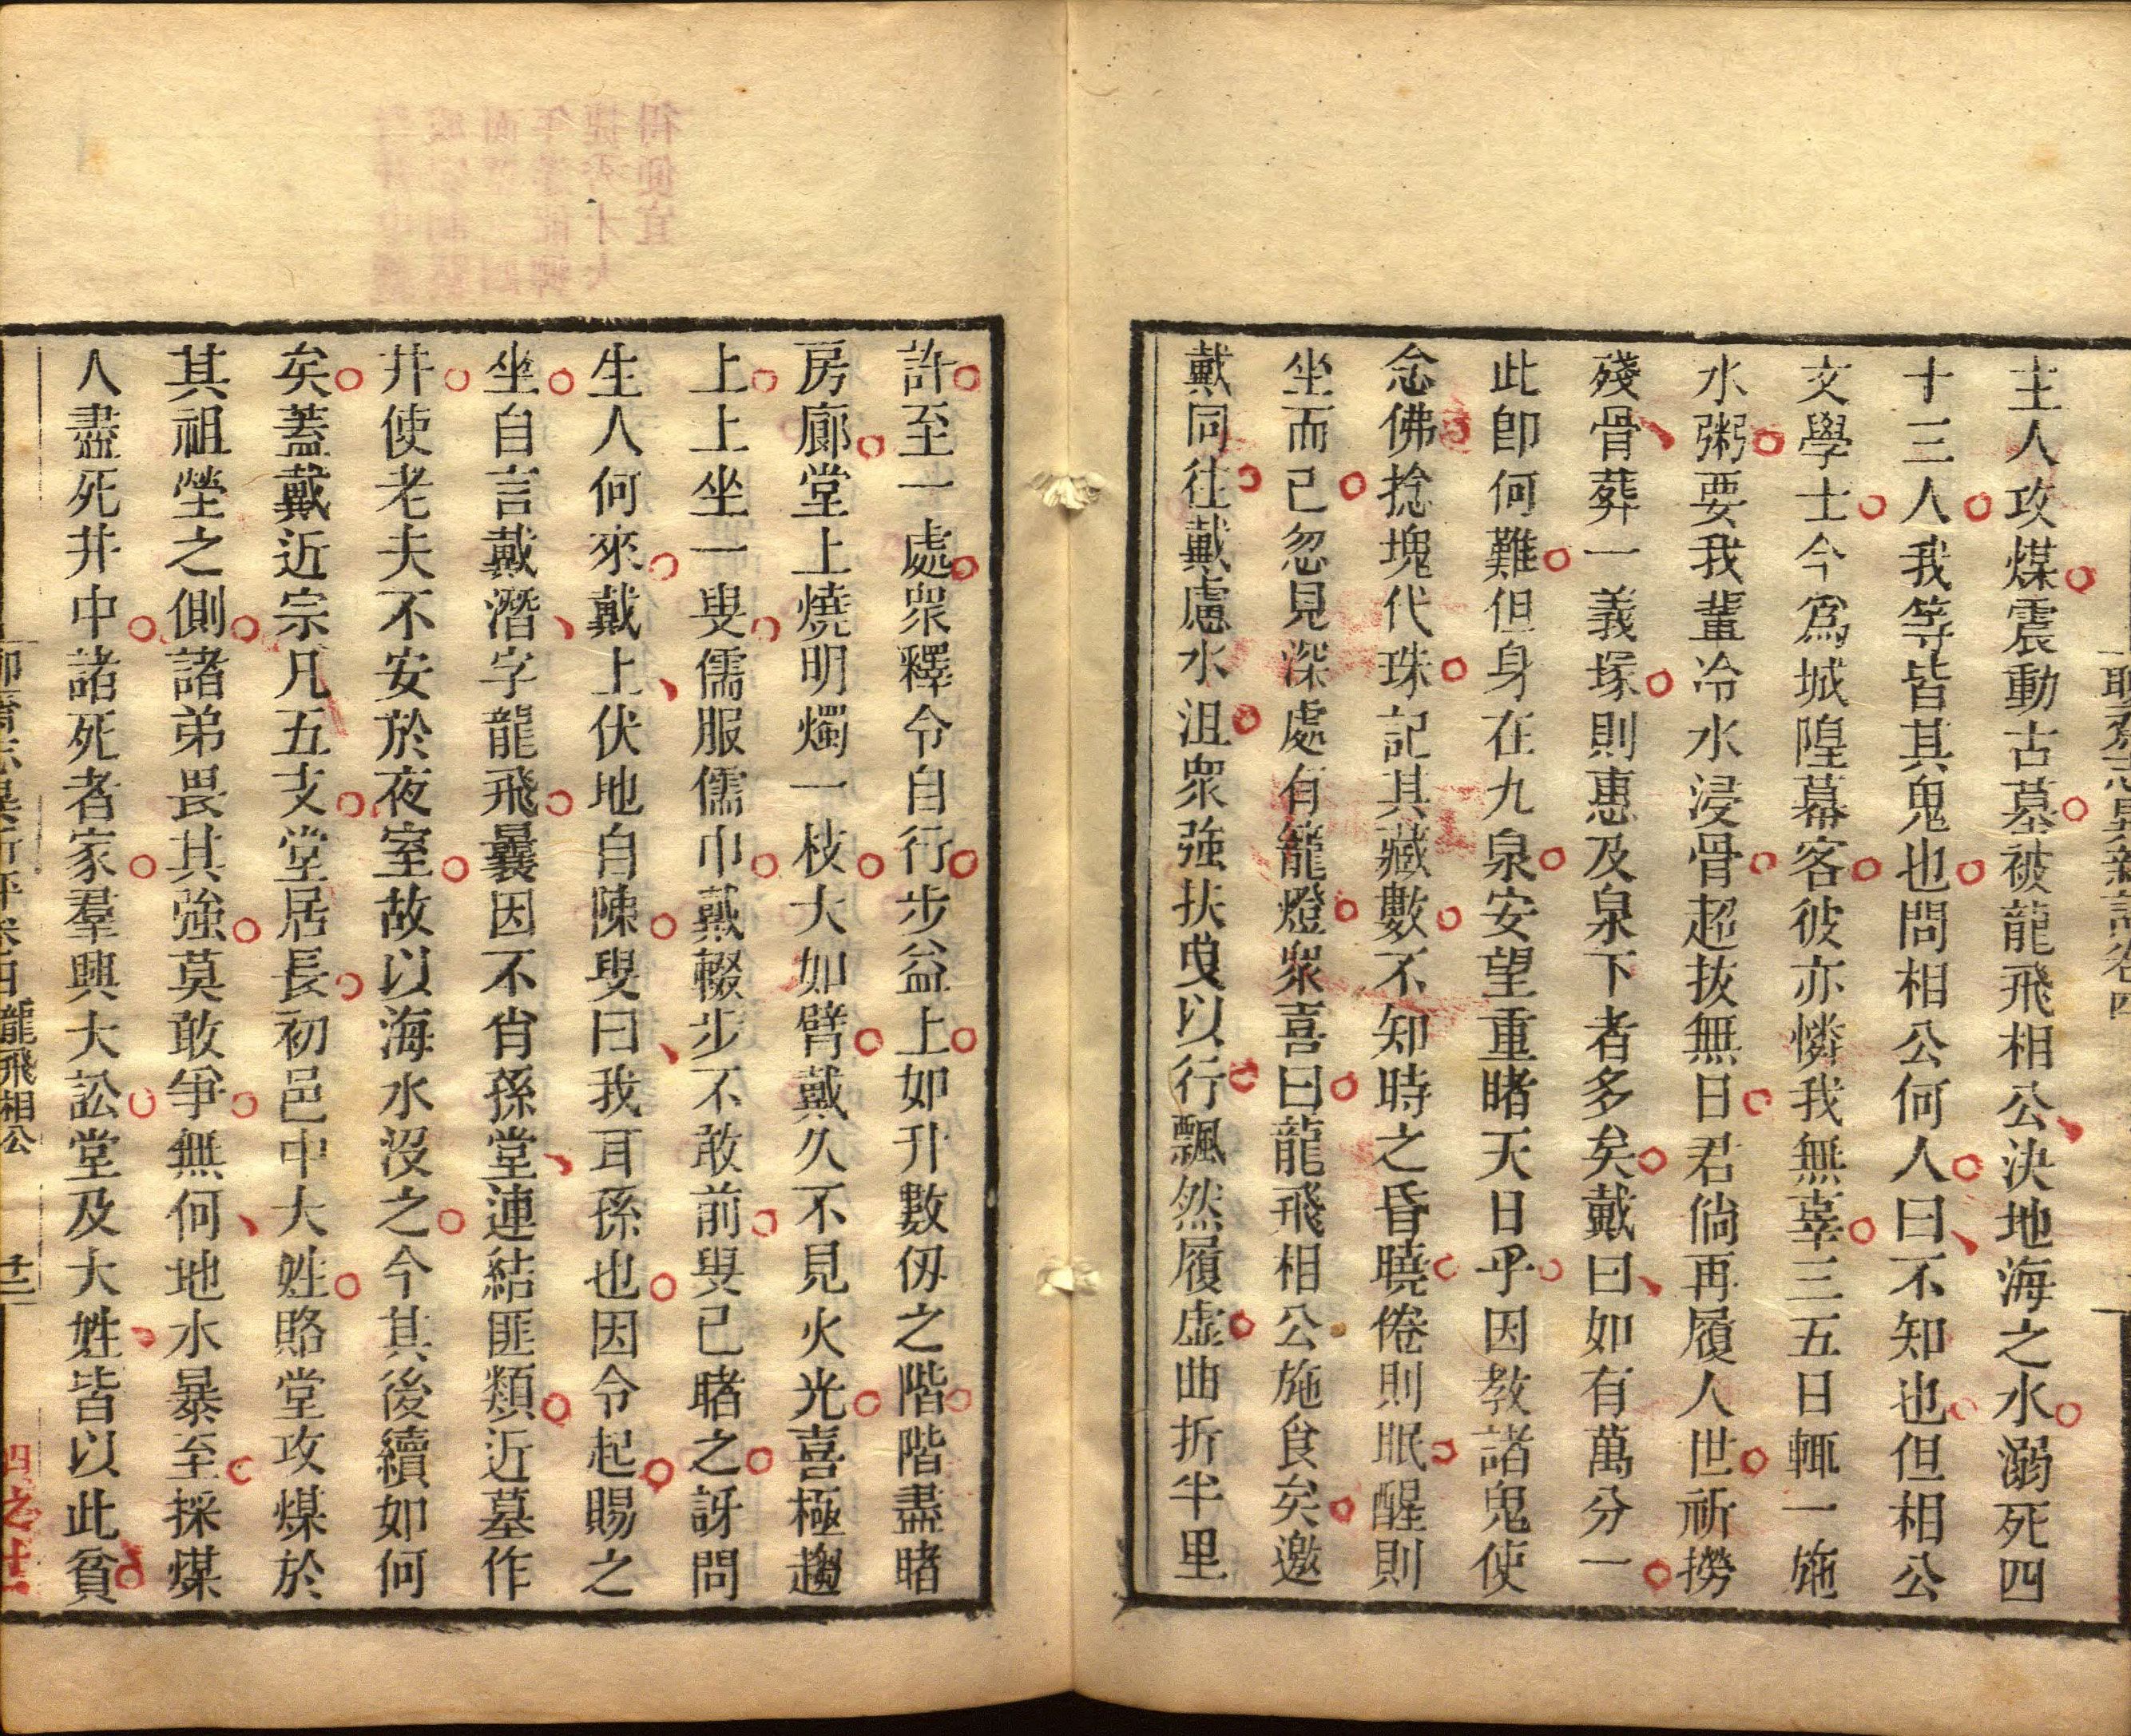 主人攻煤震動古墓被龍飛相公決地海之水溺死四
十三人我等皆其鬼也問相公何人曰不知也但相公
文學士今爲城隍幕客彼亦憐我無辜三五日輒一施
水粥要我輩冷水浸骨超拔無日君倘再履人世祈撈
殘骨葬一義塚則惠及泉下者多矣戴曰如有萬分一
此卽何難但身在九泉安望重睹天日乎因教諸鬼使
念佛捻塊代珠記其藏數不知時之昏曉倦則眠醒則
坐而已忽見深處有籠燈衆喜曰龍飛相公施食矣邀
戴同往戴慮水沮衆強扶曳以行飄然履虛曲折半里
許至一處衆釋令自行步益上如升數仞之階階盡睹
房廊堂上燒明燭一枝大如臂戴久不見火光喜極趨
上上坐一叟儒服儒巾戴輟步不敢前叟已睹之訝問
生人何來戴上伏地自陳叟曰我耳孫也因令起賜之
坐自言戴潛字龍飛曩因不肖孫堂連結匪類近墓作
井使老夫不安於夜室故以海水沒之今其後續如何
矣蓋戴近宗凡五支堂居長初邑中大姓賂堂攻煤於
其祖塋之側諸弟畏其強莫敢爭無何地水暴至採煤
人盡死井中諸死者家羣興大訟堂及大姓皆以此貧
龍飛相公
四之廿二